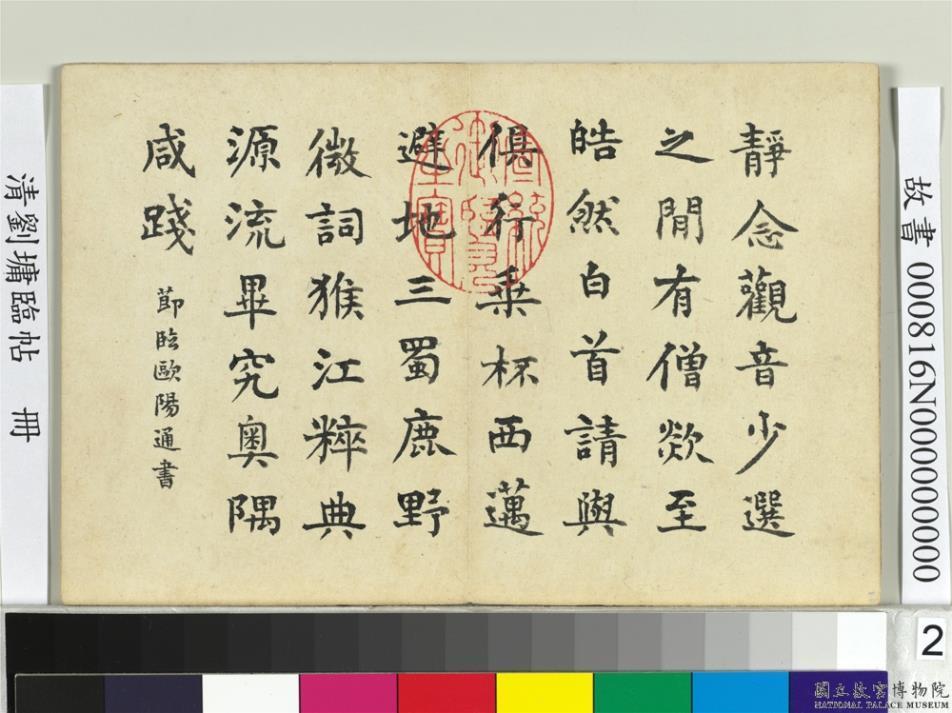 靜念觀音少選
之間有僧欻至
皓然白首請與
俱行乘杯西邁
避地三蜀鹿野
微詞猴江粹典
源流畢究奧隅
咸踐
節臨歐陽通書
故書 000816N000000000
清劉墉臨帖 冊
2
國立故宮博物院
NATIONAL PALACE MUSEUM